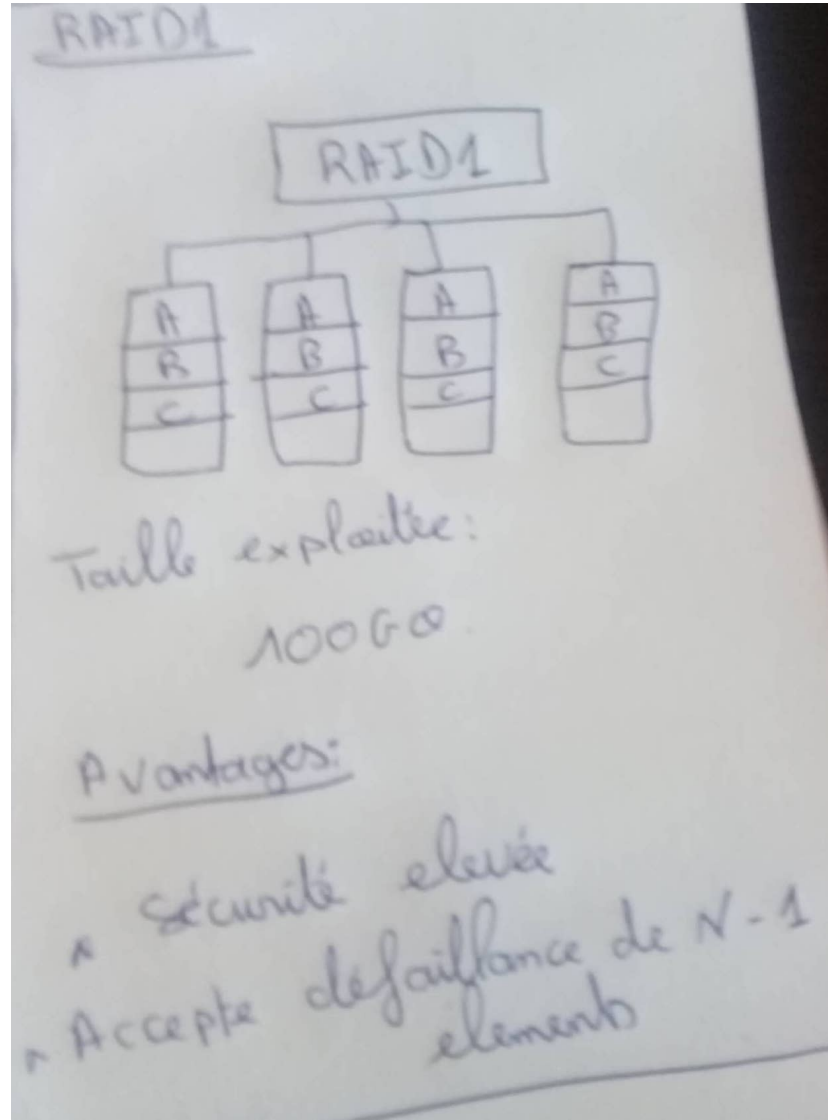 RAID1
RAID1
A A A A
B B B B
C C C C
Taille exploitée:
100GO
Avantages:
Sécurité elevée
Accepte défaillance de N-1
elements